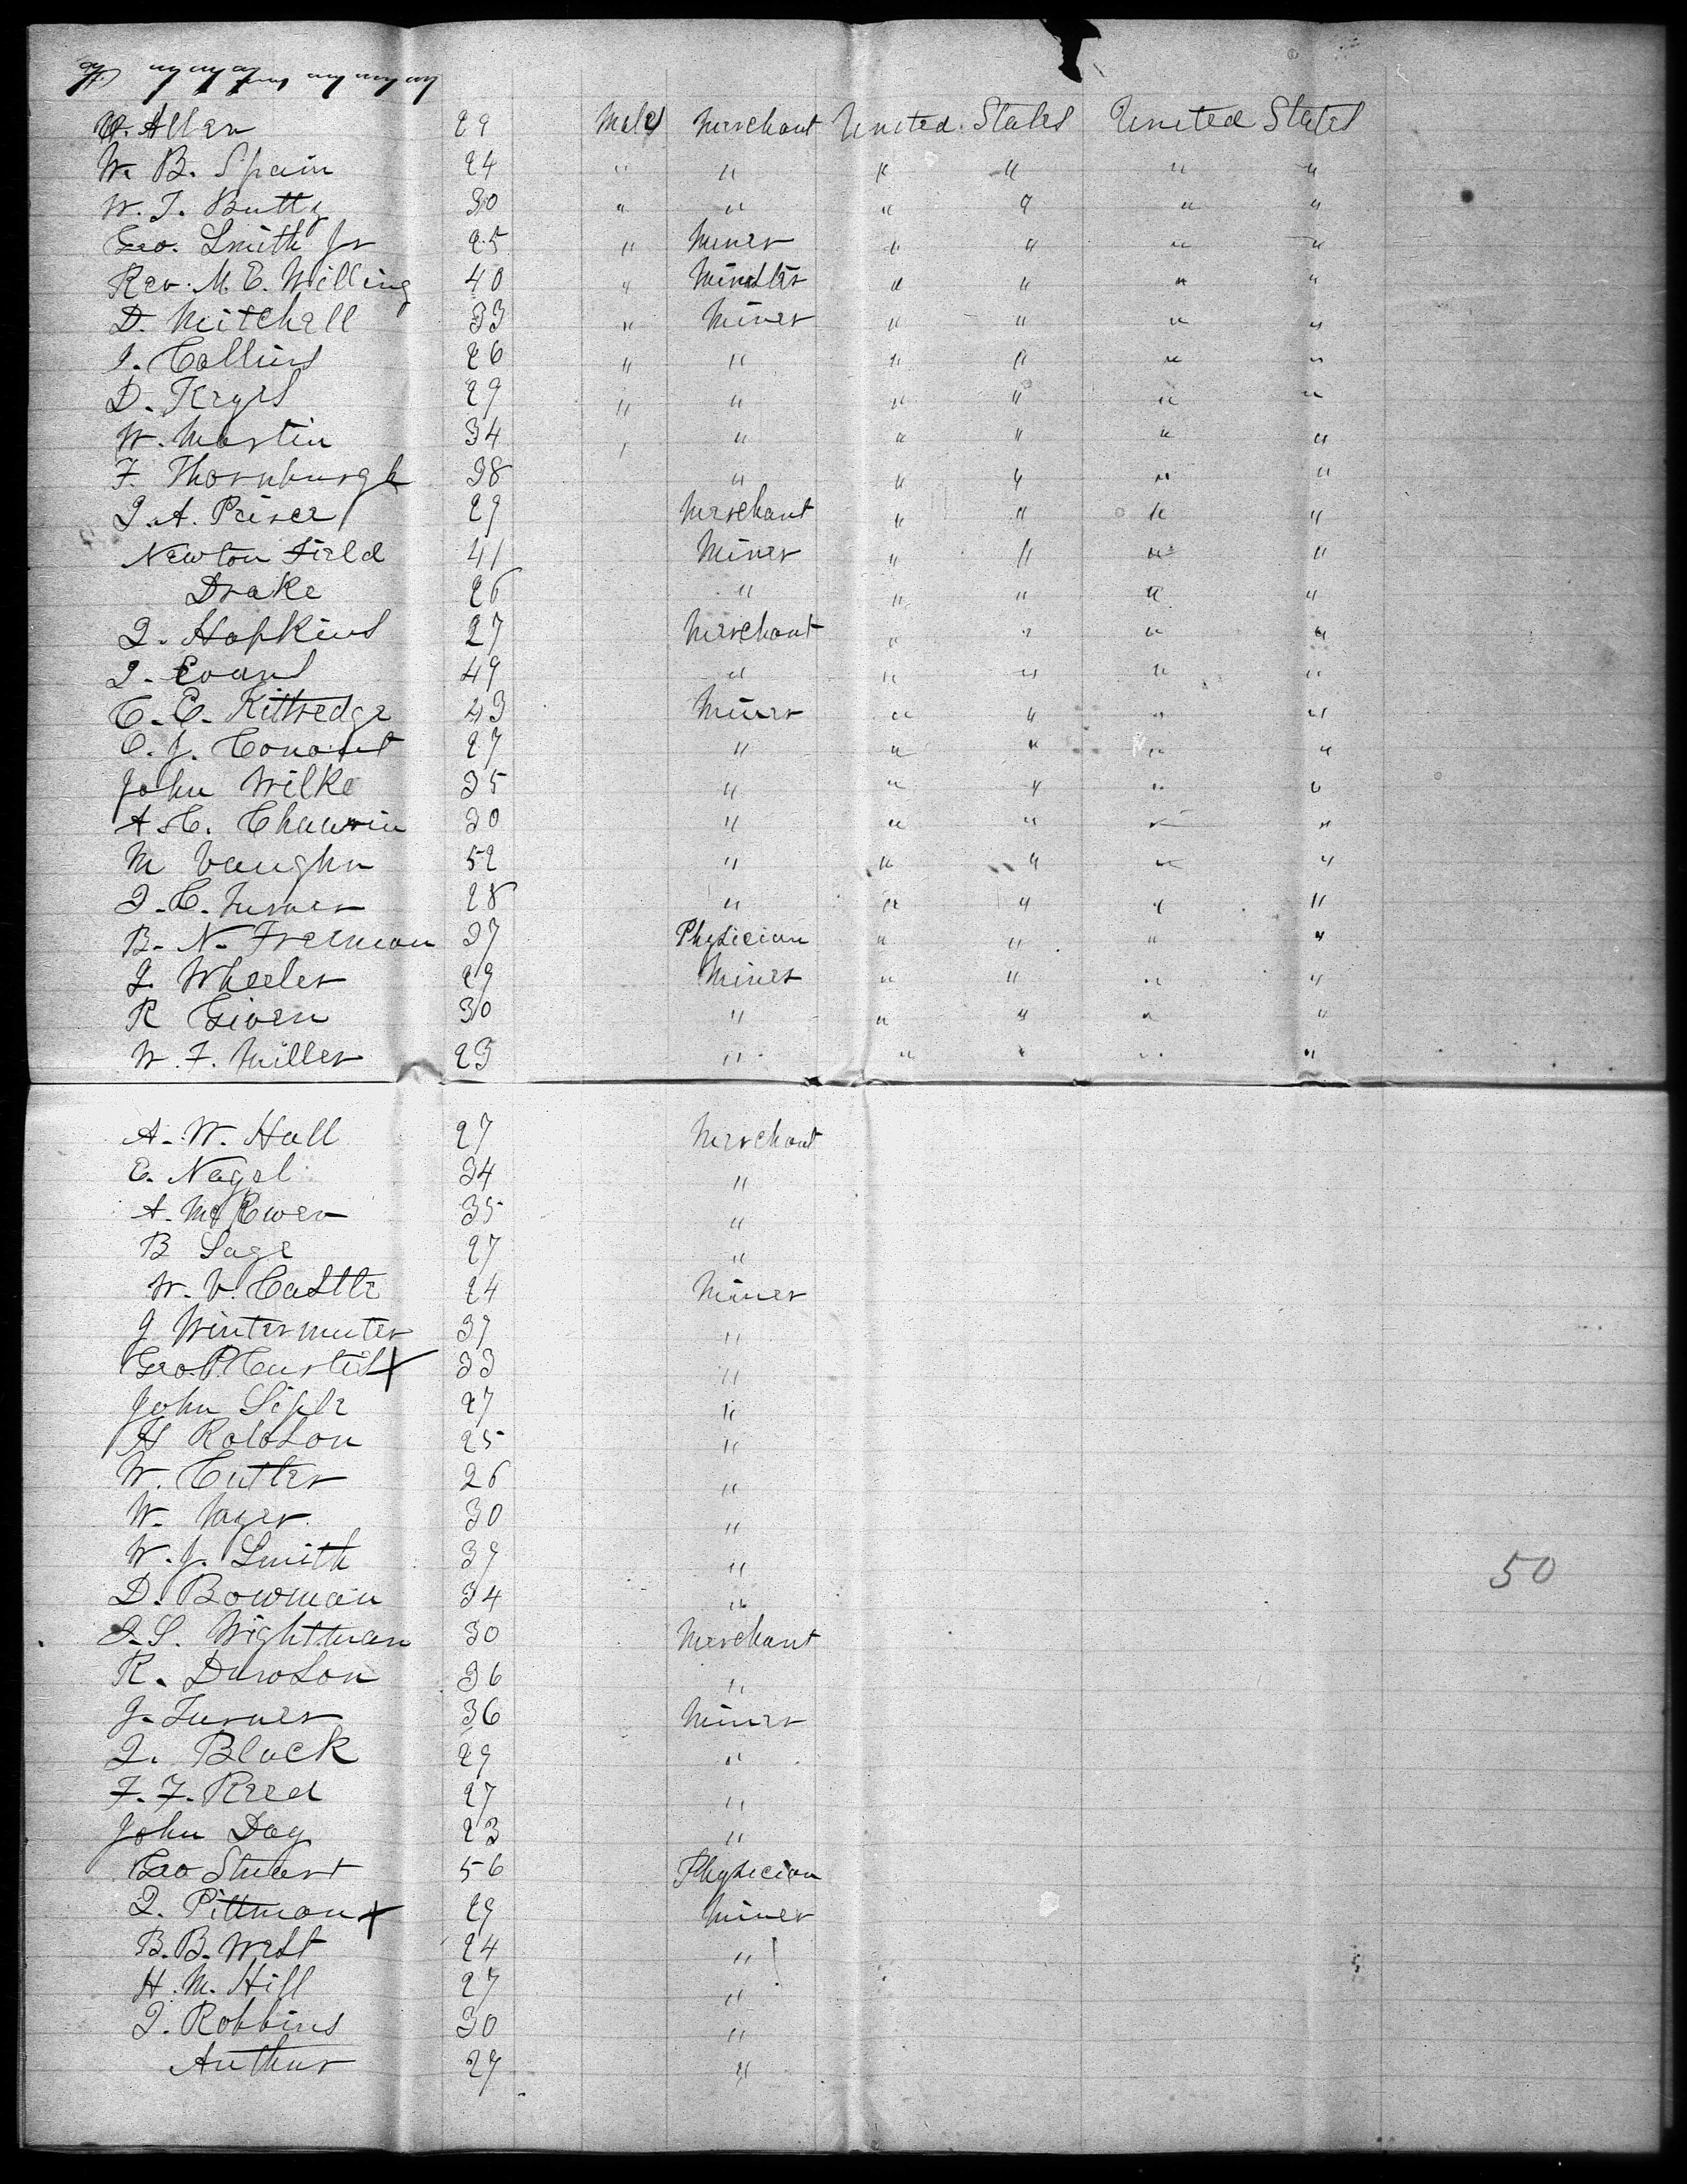 Allen 29 Males Merchant United States United States
W. B. Spain 24 " " " " " "
W. T. Butty 30 " " " " " "
Geo. Smith Jr 25 " Miner " " " "
Rev. M. C. Willing 40 " Minster " " " "
D. Mitchell 33 " Miner " " " "
J. Collins 26 " " " " " "
D. Keyes 29 " " " " " "
W. Martin 34 " " " " " "
F. Thornburgh 38 " " " " "
J. A. Priser 29 Merchant " " " "
Newton Field 41 Miner " " " "
Drake 26 " " " " "
J. Hopkins 27 Merchant " " " "
J. Evans 49 " " " " "
C. C. Kittredge 43 Miner " " " "
C. J. Conant 27 " " " " "
John Wilke 35 " " " " "
A. C. Chauvin 30 " " " " "
M Vaughn 52 " " " " "
J. C. Turner 28 " " " " "
B. N. Freeman 37 Physician " " " "
J. Wheeler 29 Miner " " " "
R Given 30 " " " " "
W. F. Miller 23 " " " " "
A. W. Hall 27 Merchant
E. Nagel 34 "
A. McEwen 35 "
B Sage 27 "
W. V. Castle 24 Miner
J Wintermuter 37 "
Geo. P. Custis X 33 "
John Siple 27 "
H Robson 25 "
W. Cutler 26 "
W. 30 "
W. J. Smith 37 "
D. Bowman 34 "
J. S. Wightman 30 Merchant
R. Dawson 36 "
J. Turner 36 Miner
J. Black 29 "
F. F. Reed 27 "
John Day 23 "
Geo Stuart 56 Physician
J. Pittman X 29 Miner
B. B. West 24 "
H. M. Hill 27 "
J. Robbins 30 "
Arthur 27 "
50